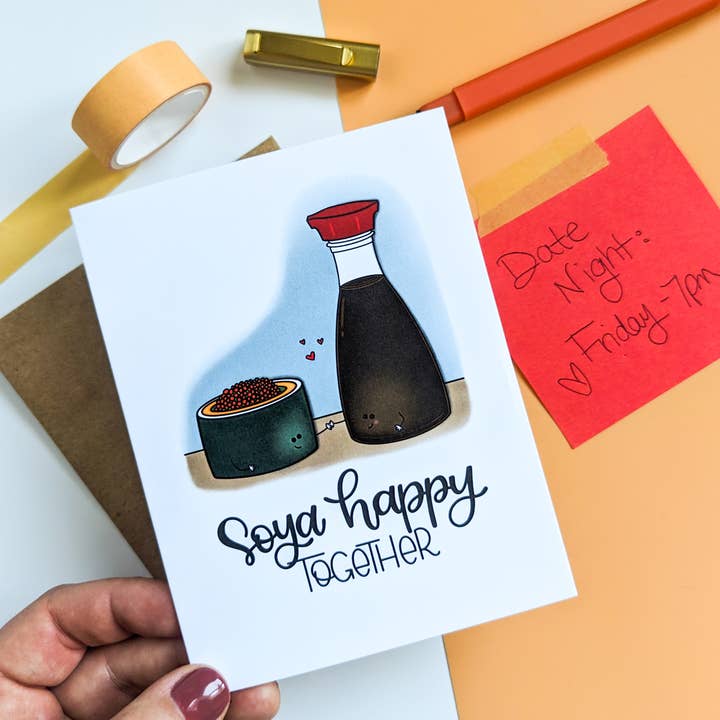 Soya happy
TOGETHER
Date
Night:
♡ Friday - 7pm